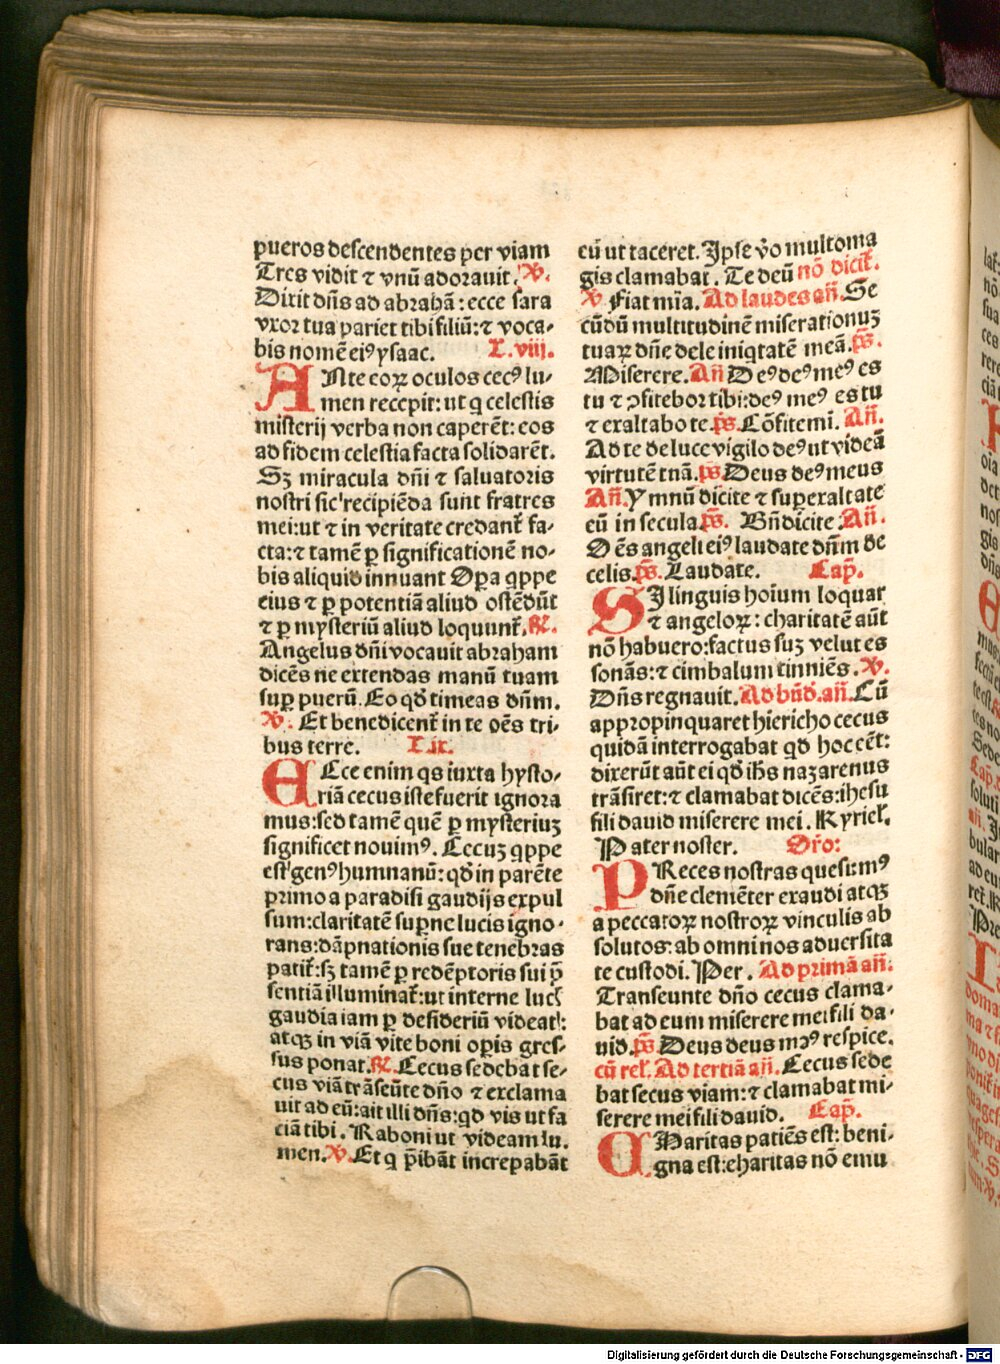 pueros descendentes per viam
Tres vidit ⁊ vnū adorauit. ℣.
Dixit dn̄s ad abrahā : ecce sara
vxor tua pariet tibi filiū: ⁊ voca-
bis nomē eiꝰ ysaac. L. viij.
ANte eoꝝ oculos cecꝰ lu-
men recepit: ut q celestis
misterij verba non caperēt: eos
ad fidem celestia facta solidarēt.
Sꝫ miracula dn̄i ⁊ saluatoris
nostri sic recipiēda sunt fratres
mei: ut ⁊ in veritate credant̄ fa-
cta: ⁊ tamē ꝑ significationē no-
bis aliquid innuant Oꝑa qppe
eius ⁊ ꝑ potentiā aliud ostēdūt
⁊ ꝑ mysteriū aliud loquunt̄. ℟.
Angelus dn̄i vocauit abraham
dicēs ne extendas manū tuam
suꝑ puerū. Eo qd̓ timeas dn̄m.
℣. Et benedicent̄ in te oēs tri-
bus terre. L. ix.
ECce enim qs iuxta hysto-
riā cecus iste fuerit ignora
mus: sed tamē quē ꝑ mysteriuꝫ
significet nouimꝰ. Cecuꝫ qppe
est genꝰ humnanū: qd̓ in parēte
primo a paradisi gaudijs expul
sum: claritatē suꝑne lucis igno-
rans: dāpnationis sue tenebras
patit̄: sꝫ tamē ꝑ redēptoris sui p̄
sentiā illuminat̄: ut interne lucꝭ
gaudia iam ꝑ desideriū videat:
atqꝫ in viā vite boni oꝑis gres-
sus ponat. ℟. Cecus sedebat se-
cus viā trāseūte dn̄o ⁊ exclama
uit ad eū: ait illi dn̄s: qd vis ut fa
ciā tibi. Raboni ut videam lu-
men. ℣. Et q p̄ibāt increpabāt
eū ut taceret. Ipse v̓o multo ma
gis clamabat. Te deū nō dicit̄.
℣. Fiat mīa. Ad laudes an̄. Se
cūdū multitudinē miserationuꝫ
tuaꝝ dn̄e dele iniqtatē meā. ps̄.
Miserere. An̄ Deꝰ deꝰ meꝰ es
tu ⁊ ꝯfitebor tibi: deꝰ meꝰ es tu
⁊ exaltabo te. ps̄. Cōfitemi. An̄.
Ad te de luce vigilo deꝰ ut videā
virtutē tuā. ps̄. Deus deꝰ meus
An̄. Ymnū dicite ⁊ superaltate
eū in secula. ps̄. Bn̄dicite An̄.
Oēs angeli eiꝰ laudate dn̄m de
celis. ps̄. Laudate. Cap̄.
SI linguis hoīum loquar
⁊ angeloꝝ: charitatē aūt
nō habuero: factus suꝫ velut es
sonās: ⁊ cimbalum tinniēs. ℣.
Dn̄s regnauit. Ad bn̄d. an̄. Cū
appropinquaret hiericho cecus
quidā interrogabat qd̓ hoc eēt:
dixerūt aūt ei qd̓ ihs̄ nazarenus
trāsiret: ⁊ clamabat dicēs: ihesu
fili dauid miserere mei. Kyriel̄.
Pater noster. Or̄o:
PReces nostras quesumꝰ
dn̄e clemēter exaudi atqꝫ
a peccatoꝝ nostroꝝ vinculis ab
solutos: ab omni nos aduersita
te custodi. Per. Ad primā an̄:
Transeunte dn̄o cecus clama-
bat ad eum miserere mei fili da-
uid. ps̄. Deus deus mꝰ respice.
cū rel̄. Ad tertiā an̄. Cecus sede
bat secus viam: ⁊ clamabat mi-
serere mei fili dauid. Cap̄.
CHaritas patiēs est: beni-
gna est: charitas nō emu
Digitalisierung gefördert durch die Deutsche Forschungsgemeinschaft - DFG